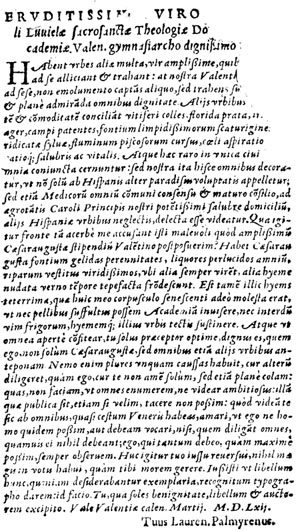 ERVDITISSIM. VIRO
li Luuiele sacrosanctæ Theologiæ Do
cademiæ. Valen. gymnasiarcho dignissimo:
HAbent vrbes alia multa, vir amplissime, quib
ad se alliciant & trahant: at nostra Valent
ad sese, non emolumento captas aliquo, sed trahens su
& planè admirãda omnibus dignitate. Alijs vrbibus
tẽ & cõmoditatẽ conciliãt vitiferi colles, florida prata, n
ager, campi patentes, fontium limpidissimorum scaturigine
ridicata sylua, fluminum piscosorum cursus, cœli aspiratio
ratioq; salubris ac vitalis. Atque hæc raro in vnica ciui
mnia coniuncta cernuntur: sed nostra ita hisce omnibus decora-
tur, vt nõ solũ ab Hispanis alter paradisus voluptatis appelletur;
sed etiã Medicorũ omniũ cõmuni consensu & maturo cõsilio, ad
ægrotãtis Caroli Principis nostri potẽtissimi salubre domiciliũ,
alijs Hispaniæ vrbibus neglectis, delecta esse videatur. Quas igi-
tur fronte tã acerbè me accusant isti maleuoli quòd amplissimũ
Cæsaraugustæ stipendiũ Valẽtino postposuerim? Habet Cæsarau-
gusta fontium gelidas perennitates, liquores perlucidos amniũ,
riparum vestitus viridissimos, vbi alia semper virẽt, alia hyeme
nudata verno tẽpore tepefacta frõdescunt. Est tamẽ illic hyems
teterrima, quæ huic meo corpusculo senescenti adeò molesta erat,
vt nec pellibus suffultus possem Academiã inuisere, nec interdũ
vim frigorum, hyememq; illius vrbis tectus sustinere. Atque vt
omnea apertè cõfitear, tu solus præceptor optime, dignus es, quem
ego, non solùm Cæsaraugustæ, sed omnibus etiã alijs vrbibus an-
teponam Nemo enim plures vnquam caussas habuit, cur alterũ
diligeret, quàm ego, cur te non amẽ solùm, sed etiã planè colant
quas, non faciam, vt omnes enumerem, ne videar ambitiosus: illã
quæ publica sit, etiam si velim, tacere non possim: quòd videãte
sic ab omnibus, quasi cestum Veneriũ habeas, amari, vt ego ne ho-
mo quidem possim, aut debeam vocari, nisi, quem diligũt omnes,
quamuis ei nihil debeant; ego, qui tantum debeo, quàm maxime
possim, semper obseruem. Hucigitur tuo iussu reuersus, nihil ma
gis in votu habui, quàm tibi morem gerere. Iussisti vt libellum
hunc, quoniam desiderabantur exemplaria, recognitum typogra-
pho darem: id facio. Tu, qua soles benignitate, libellum & aucto-
rem excipito. Vale Valentiæ calen. Martij. M.D.LXII.
Tuus Lauren. Palmyrenus.